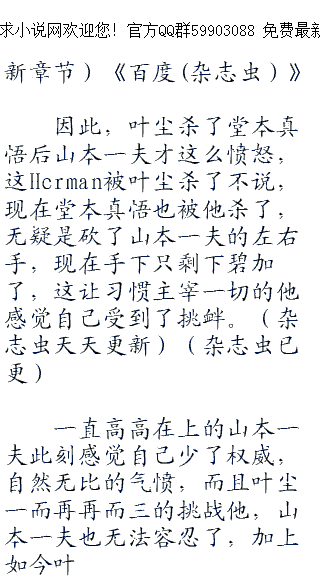 求小说网欢迎您! 官方QQ群59903088 免费最新
新章节）《百度(杂志虫）》
因此，叶尘杀了堂本真
悟后山本一夫才这么愤怒，
这Herman被叶尘杀了不说，
现在堂本真悟也被他杀了，
无疑是砍了山本一夫的左右
手，现在手下只剩下碧加
了，这让习惯主宰一切的他
感觉自己受到了挑衅。（杂
志虫天天更新）（杂志虫已
更）
一直高高在上的山本一
夫此刻感觉自己少了权威，
自然无比的气愤，而且叶尘
一而再再而三的挑战他，山
本一夫也无法容忍了，加上
如今叶